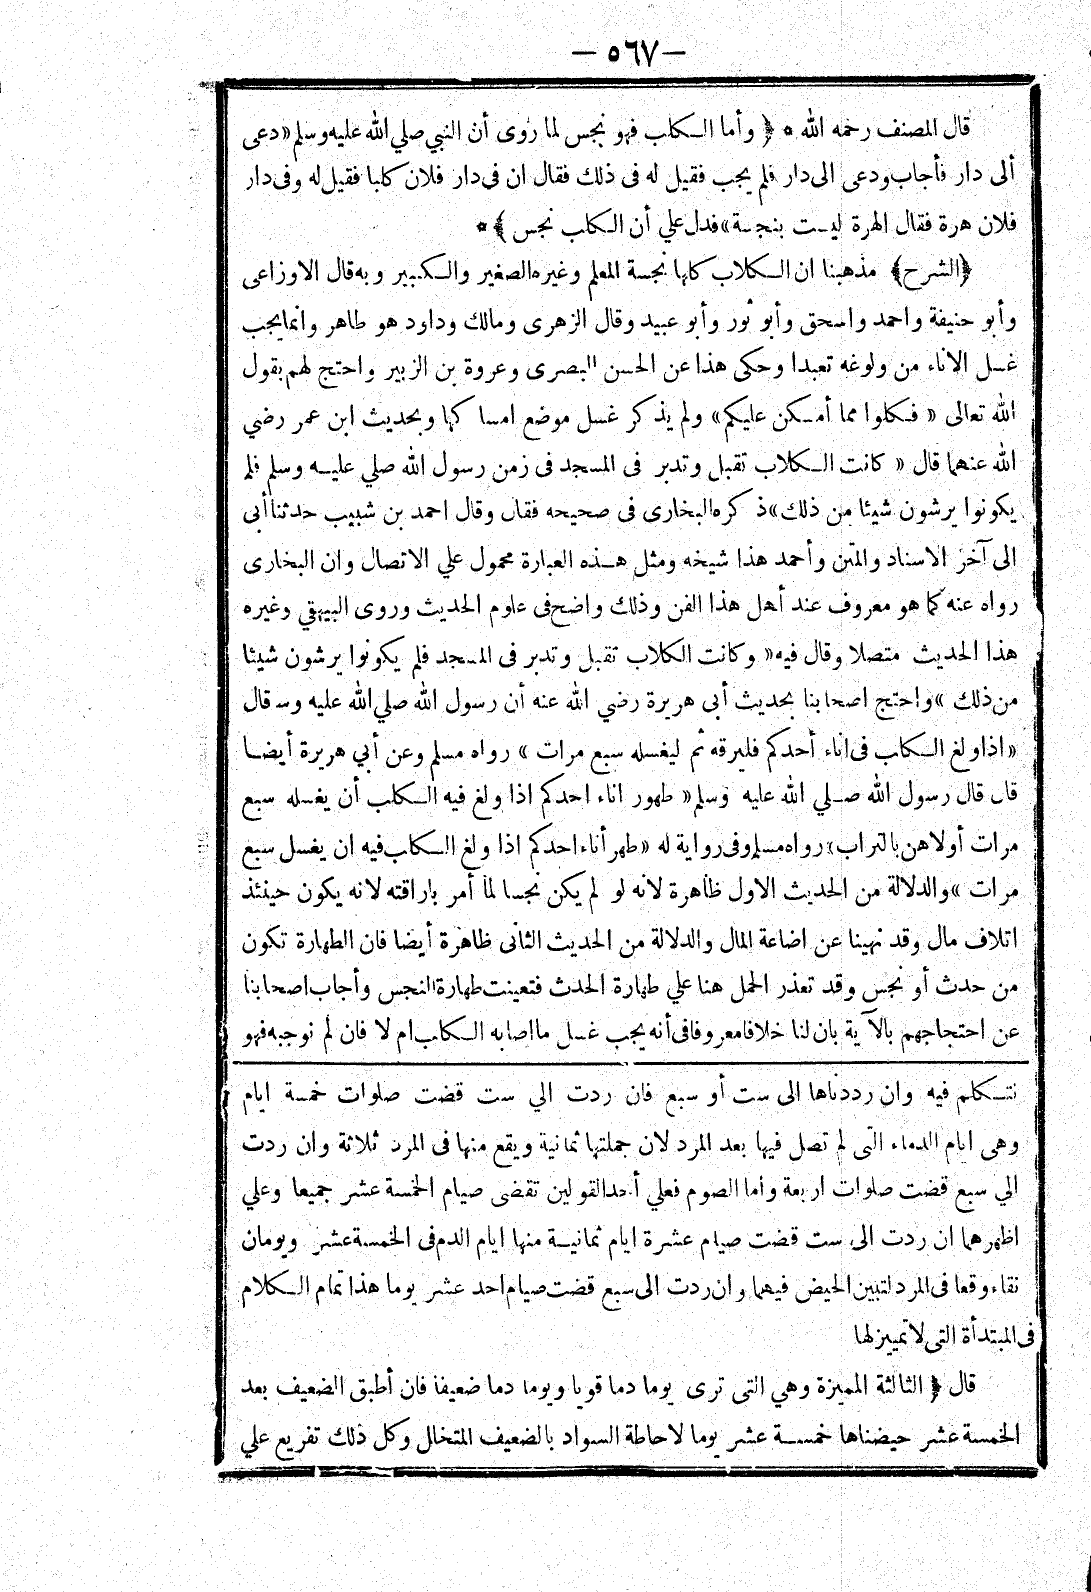 — ٥٦٧ —
قال المصنف رحمه الله * ﴿ وأما الكلب فهو نجس لما روى أن النبي صلي الله عليه وسلم «دعى
ألى دار فأجاب ودعى الى دار فلم يجب فقيل له فى ذلك فقال ان فى دار فلان كلبا فقيل له وفى دار
فلان هرة فقال الهرة ليست بنجسة» فدل علي أن الكلب نجس ﴾ *
﴿الشرح﴾ مذهبنا ان الكلاب كلها نجسة المعلم وغيره الصغير والكبير وبه قال الاوزاعى
وأبو حنيفة واحمد واسحق وأبو ثور وأبو عبيد وقال الزهرى ومالك وداود هو طاهر وانما يجب
غسل الاناء من ولوغه تعبدا وحكى هذا عن الحسن البصرى وعروة بن الزبير واحتج لهم بقول
الله تعالى « فكلوا مما أمسكن عليكم» ولم يذكر غسل موضع امساكها وبحديث ابن عمر رضي
الله عنهما قال « كانت الكلاب تقبل وتدبر فى المسجد فى زمن رسول الله صلي عليه وسلم فلم
يكونوا يرشون شيئا من ذلك» ذكره البخارى فى صحيحه فقال وقال احمد بن شبيب حدثنا أبى
الى آخر الاسناد والمتن وأحمد هذا شيخه ومثل هذه العبارة محمول علي الاتصال وان البخارى
رواه عنه كما هو معروف عند أهل هذا الفن وذلك واضح فى علوم الحديث وروى البيهقي وغيره
هذا الحديث متصلا وقال فيه « وكانت الكلاب تقبل وتدبر فى المسجد فلم يكونوا يرشون شيئا
من ذلك » واحتج اصحابنا بحديث أبى هريرة رضي الله عنه أن رسول الله صلي الله عليه وس قال
« اذا ولغ الكلب فى اناء أحدكم فليرقه ثم ليغسله سبع مرات » رواه مسلم وعن أبي هريرة أيضا
قال قال رسول الله صلي الله عليه وسلم « طهور اناء احدكم اذا ولغ فيه الكلب أن يغسله سبع
مرات أولاهن بالتراب» رواه مسلم وفى رواية له « طهر أناء احدكم اذا ولغ الكلب فيه ان يغسل سبع
مرات » والدلالة من الحديث الاول ظاهرة لانه لو لم يكن نجسا لما أمر باراقته لانه يكون حينئذ
اتلاف مال وقد نهينا عن اضاعة المال والدلالة من الحديث الثانى ظاهرة أيضا فان الطهارة تكون
من حدث أو نجس وقد تعذر الحمل هنا علي طهارة الحدث فتعينت طهارة النجس وأجاب اصحابنا
عن احتجاجهم بالآية بان لنا خلافا معروفا فى أنه يجب غسل ما اصابه الكلب ام لا فان لم نوجبه فهو
نتكلم فيه وان رددناها الى ست أو سبع فان ردت الي ست قضت صلوات خمسة ايام
وهى ايام الدماء التى لم تصل فيها بعد المرد لان جملتها ثمانية ويقع منها فى المرد ثلاثة وان ردت
الي سبع قضت صلوات اربعة واما الصوم فعلي أحد القولين تقضى صيام الخمسة عشر جميعا وعلي
اظهرهما ان ردت الى ست قضت صيام عشرة ايام ثمانية منها ايام الدم فى الخمسة عشر ويومان
نقاء وقعا فى المرد لتبين الحيض فيهما وان ردت الى سبع قضت صيام احد عشر يوما هذا تمام الكلام
فى المبتدأة التى لا تمييز لها
قال ﴿ الثالثة المميزة وهي التى ترى يوما دما قويا ويوما دما ضعيفا فان أطبق الضعيف بعد
الخمسة عشر حيضناها خمسة عشر يوما لاحاطة السواد بالضعيف المتخلل وكل ذلك تفريع علي